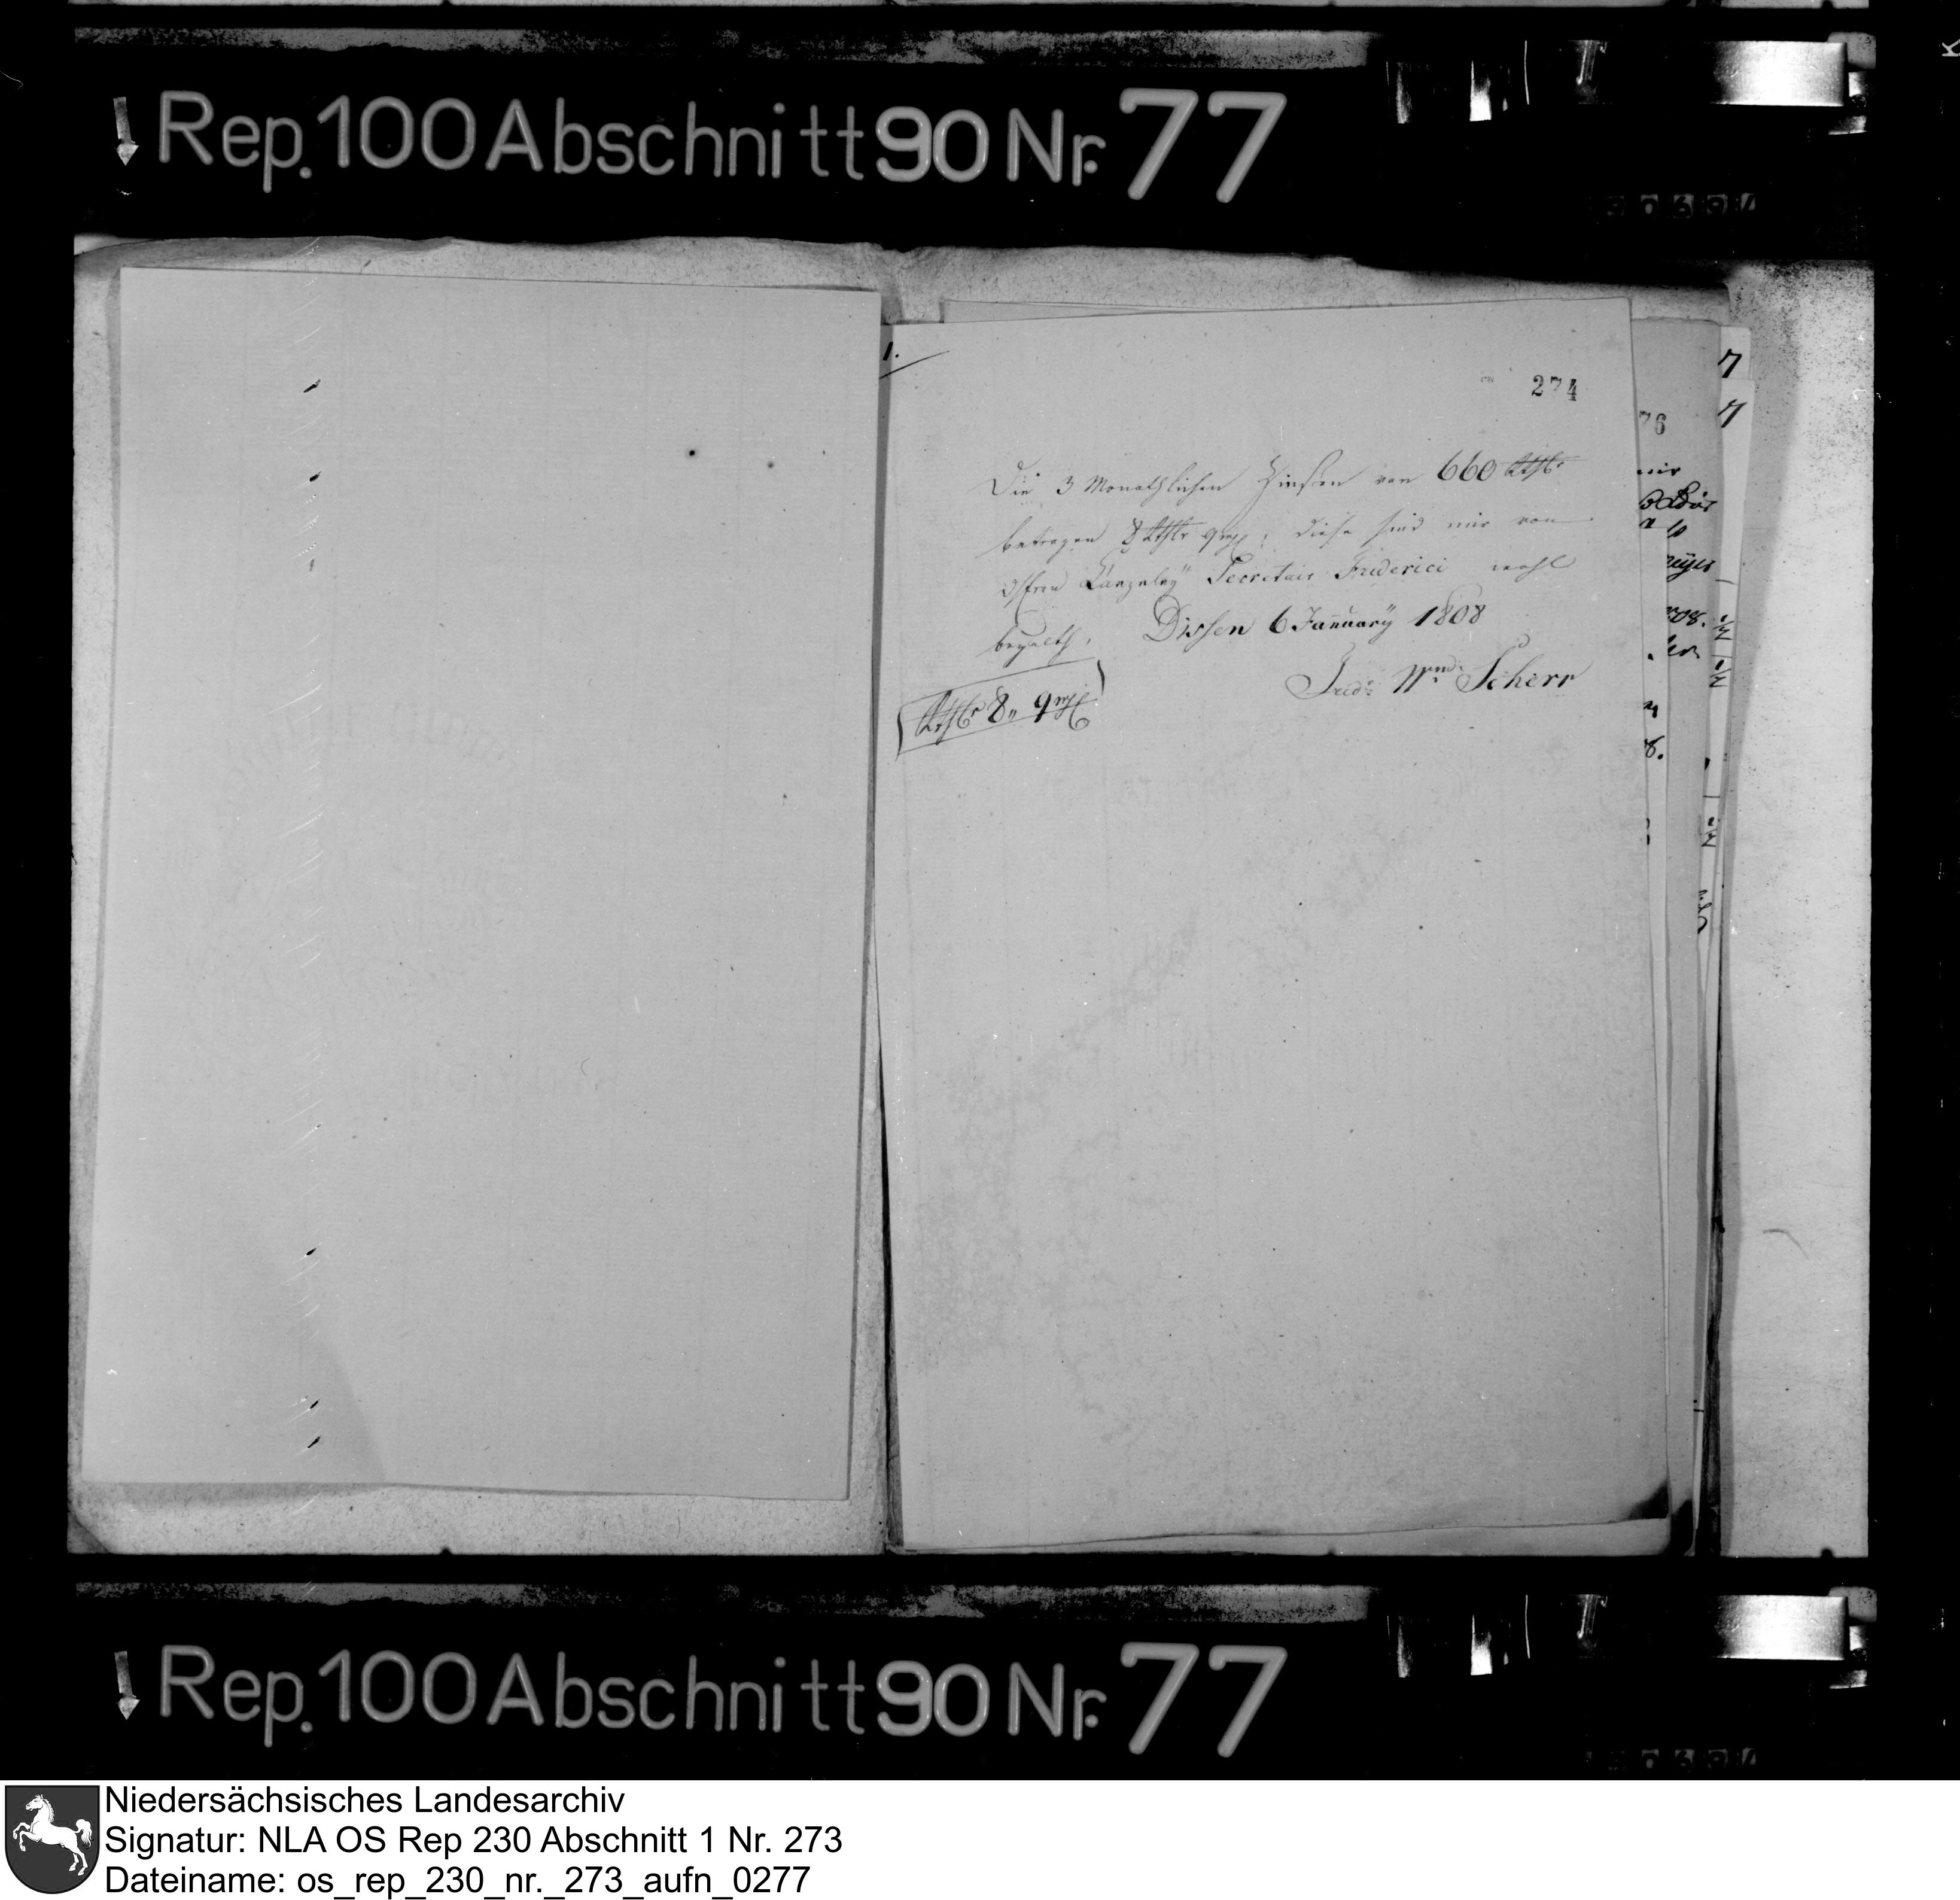 Rep. 100 Abschnitt 90 Nr. 77
1.
274
Die 3 Monathlichen Zinsen von 660 Rthlr
betragen 8 Rthlr 9 mgl; diese sind mir von
Canzeley Secretair Friderici wohl
bezalth. Dissen 6 January 1808
Fred: Wm: Scherr
Rthlr 8,, 9 mgl
7
7
76
mir
08.
Rep. 100 Abschnitt 90 Nr. 77
Niedersächsisches Landesarchiv
Signatur: NLA OS Rep 230 Abschnitt 1 Nr. 273
Dateiname: os_rep_230_nr._273_aufn_0277